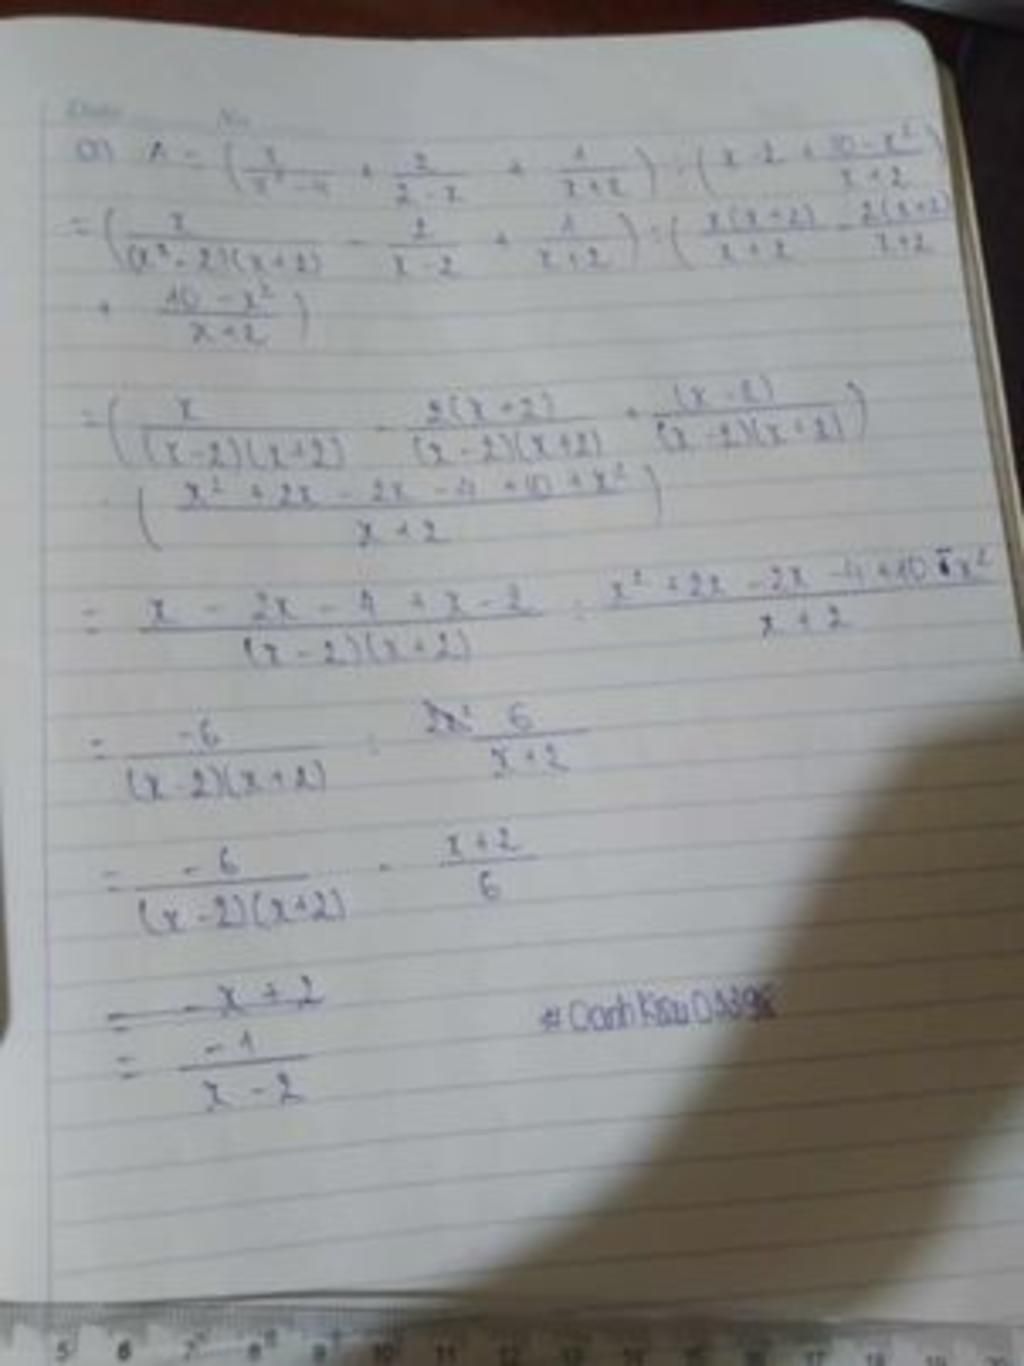 Date No
a) A = (x/(x² - 4) + 2/(2 - x) + 1/(x + 2)) : (x - 2 + (10 - x²)/(x + 2))
= (x/((x² - 2)(x + 2)) - 2/(x - 2) + 1/(x + 2)) : (x(x + 2)/(x + 2) - 2(x + 2)/(x + 2)
+ (10 - x²)/(x + 2))
= (x/((x - 2)(x + 2)) - 2(x + 2)/((x - 2)(x + 2)) + (x - 2)/((x - 2)(x + 2)))
: ((x² + 2x - 2x - 4 + 10 + x²)/(x + 2))
= (x - 2x - 4 + x - 2)/((x - 2)(x + 2)) : (x² + 2x - 2x - 4 + 10 - x²)/(x + 2)
= -6/((x - 2)(x + 2)) : 6/(x + 2)
= -6/((x - 2)(x + 2)) · (x + 2)/6
= - x + 2
= -1/(x - 2)
5 6 7 8 9 10 11 12 13 14 15 16 17 18 19 20